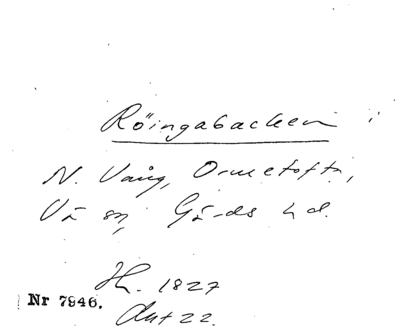 Röingabacken i
N. Vång, Ormetofta,
Vä sn, Gärds hd.
Hh. 1827
Nr 7946.
Akt 22.